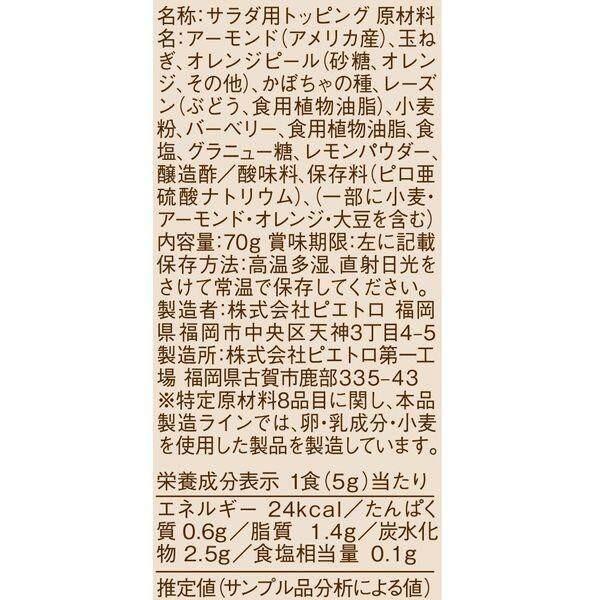 名称:サラダ用トッピング 原材料
名:アーモンド(アメリカ産)、玉ね
ぎ、オレンジピール(砂糖、オレン
ジ、その他)、かぼちゃの種、レーズ
ン(ぶどう、食用植物油脂)、小麦
粉、バーベリー、食用植物油脂、食
塩、グラニュー糖、レモンパウダー、
醸造酢/酸味料、保存料(ピロ亜
硫酸ナトリウム)、(一部に小麦・
アーモンド・オレンジ・大豆を含む)
内容量:70g 賞味期限:左に記載
保存方法:高温多湿、直射日光を
さけて常温で保存してください。
製造者:株式会社ピエトロ 福岡
県福岡市中央区天神3丁目4-5
製造所:株式会社ピエトロ第一工
場 福岡県古賀市鹿部335-43
※特定原材料8品目に関し、本品
製造ラインでは、卵・乳成分・小麦
を使用した製品を製造しています。
栄養成分表示 1食(5g)当たり
エネルギー 24kcal/たんぱく
質 0.6g/脂質 1.4g/炭水化
物 2.5g/食塩相当量 0.1g
推定値(サンプル品分析による値)